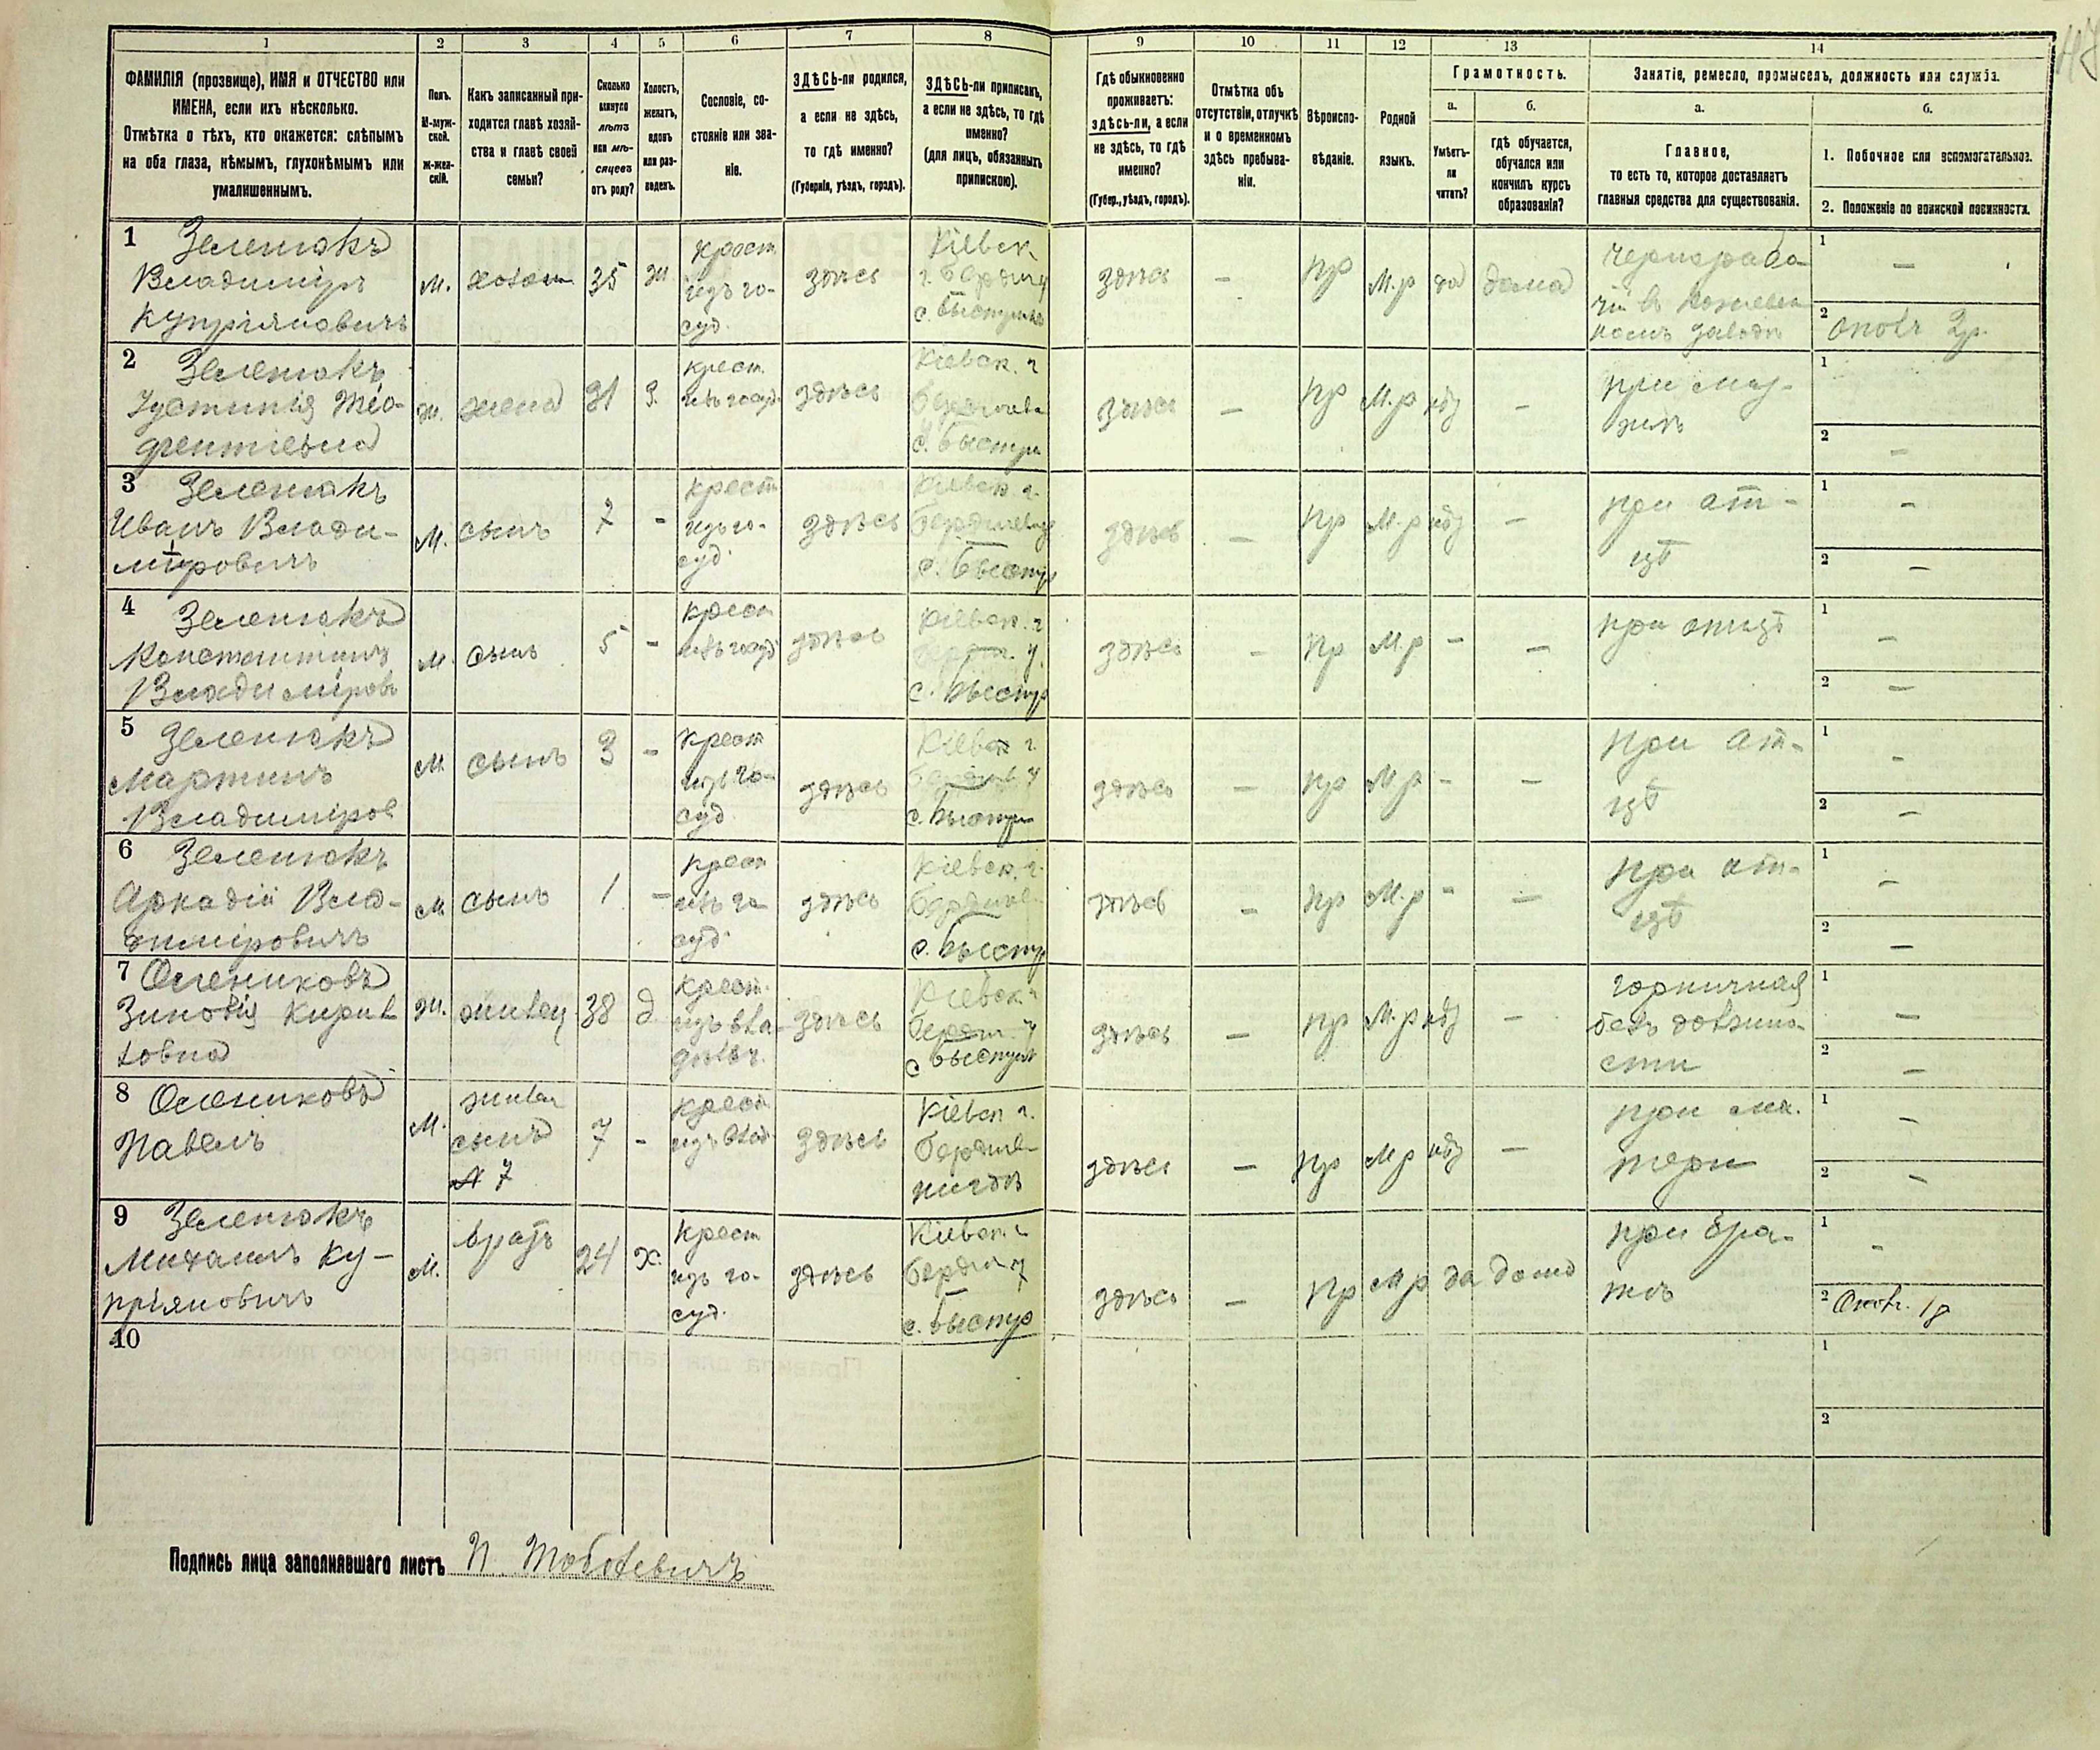 1 2 3 4 5 6 7 8 9 10 11 12 13 14
ФАМИЛІЯ (прозвище), ИМЯ и ОТЧЕСТВО или
ИМЕНА, если ихъ нѣсколько.
Отмѣтка о тѣхъ, кто окажется: слѣпымъ
на оба глаза, нѣмымъ, глухонѣмымъ или
умалишеннымъ.
Полъ.
М-муж-
ской.
ж-жен-
скій.
Какъ записанный при-
ходится главѣ хозяй-
ства и главѣ своей
семьи?
Сколько
минуло
лѣтъ
или мѣ-
сяцевъ
отъ роду?
Холостъ,
женатъ,
вдовъ
или раз-
веденъ.
Сословіе, со-
стояніе или зва-
ніе.
ЗДѢСЬ-ли родился,
а если не здѣсь,
то гдѣ именно?
(Губернія, уѣздъ, городъ).
ЗДѢСЬ-ли приписанъ,
а если не здѣсь, то гдѣ
именно?
(для лицъ, обязанныхъ
припискою).
Гдѣ обыкновенно
проживаетъ:
здѣсь-ли, а если
не здѣсь, то гдѣ
именно?
(Губер., уѣздъ, городъ).
Отмѣтка объ
отсутствіи, отлучкѣ
и о временномъ
здѣсь пребыва-
ніи.
Вѣроиспо-
вѣданіе.
Родной
языкъ.
Грамотность.
а.
Умѣетъ-
ли
читать?
б.
гдѣ обучается,
обучался или
кончилъ курсъ
образованія?
Занятіе, ремесло, промыселъ, должность или служба.
а.
Главное,
то есть то, которое доставляетъ
главныя средства для существованія.
б.
1. Побочное или вспомогательное.
2. Положеніе по воинской повинности.
1 Зеленюкъ
Владиміръ
Купріяновичъ
М.
хозяин
35
ж.
крест
изъ го-
суд.
здѣсь
Кіевск.
с. Быстрик
здѣсь
–
пр
М.р
да
дома
чернорабо
чій в
1 –
2
2 Зеленюкъ
Іустинія
ж.
жена
31
З.
крест.
изъ госуд.
здѣсь
Кіевск. г
с. Быстри
здѣсь
–
пр
М.р
–
при му-
жѣ
1
2 –
3 Зеленюкъ
Иванъ Влади-
міровичъ
М.
сынъ
7
-
крест
изъ го-
суд.
здѣсь
Кіевск. г.
с. Быстр
здѣсь
–
пр
М.р
–
при от-
цѣ
1 –
2 –
4 Зеленюкъ
Константинъ
Владиміров
М.
сынъ
5
-
крест
изъ госуд
здѣсь
Кіевск. г
с. Быстр
здѣсь
–
пр
М.р
–
–
при отцѣ
1 –
2 –
5 Зеленюкъ
Мартинъ
Владиміров
М
сынъ
3
-
крест
изъ го-
суд
здѣсь
Кіевск г
с. Быстри
здѣсь
–
пр
М р
-
–
при от-
цѣ
1 -
2 –
6 Зеленюкъ
Аркадій Вла-
диміровичъ
М
сынъ
1
-
крест
изъ го
суд.
здѣсь
Кіевск. г.
с. Быстр
здѣсь
–
пр
М.р
-
–
при от-
цѣ
1 –
2 –
7 Олениковъ
Зиновія
ж.
38
д.
крест.
здѣсь
Кіевск г
с Быстрик
здѣсь
–
пр
М.р
–
горничная
сти
1 –
2 –
8 Олениковъ
Павелъ
М.
сынъ
7
7
-
крест
здѣсь
Кіевск г.
здѣсь
–
пр
М р
–
при ма-
тери
1 –
2 –
9 Зеленюкъ
Михаилъ Ку-
пріяновичъ
М.
братъ
24
х.
крест
изъ го-
суд.
здѣсь
Кіевск. г
с. Быстр
здѣсь
–
пр
М р
да
дома
при бра-
тѣ
1 -
2
10
1
2
Подпись лица заполнявшаго листъ